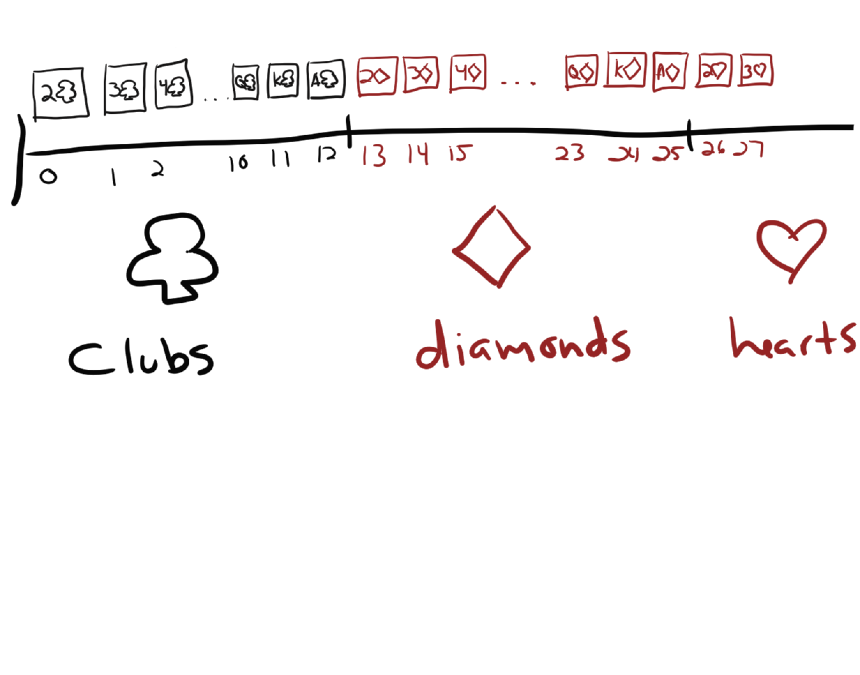 2♣ 3♣ 4♣ ... Q♣ K♣ A♣ 2♢ 3♢ 4♢ ... Q♢ K♢ A♢ 2♡ 3♡
0 1 2 10 11 12 13 14 15 23 24 25 26 27
Clubs diamonds hearts